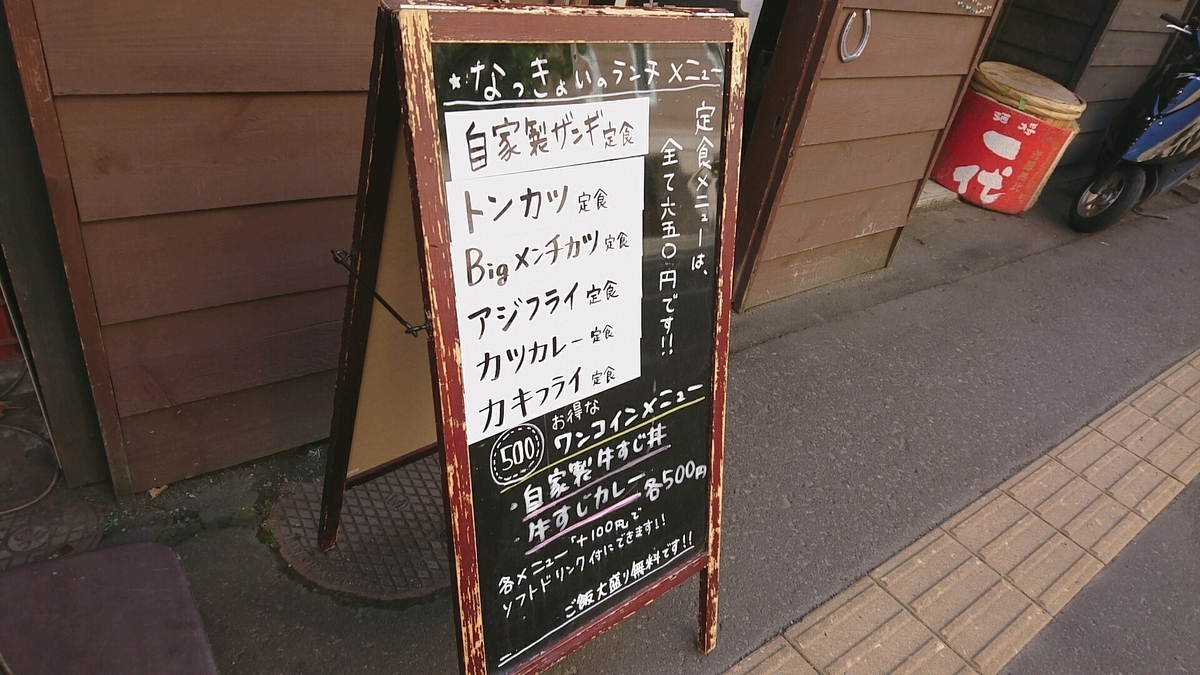 ★なっきょいのランチメニュー
定食メニューは、
全て六五〇円です!!
自家製ザンギ定食
トンカツ定食
Bigメンチカツ定食
アジフライ定食
カツカレー定食
カキフライ定食
500
お得な
ワンコインメニュー
・自家製牛すじ丼
・牛すじカレー各500円
各メニュー「+100円」で
ソフトドリンク付にできます!!
ご飯大盛り無料です!!
一代